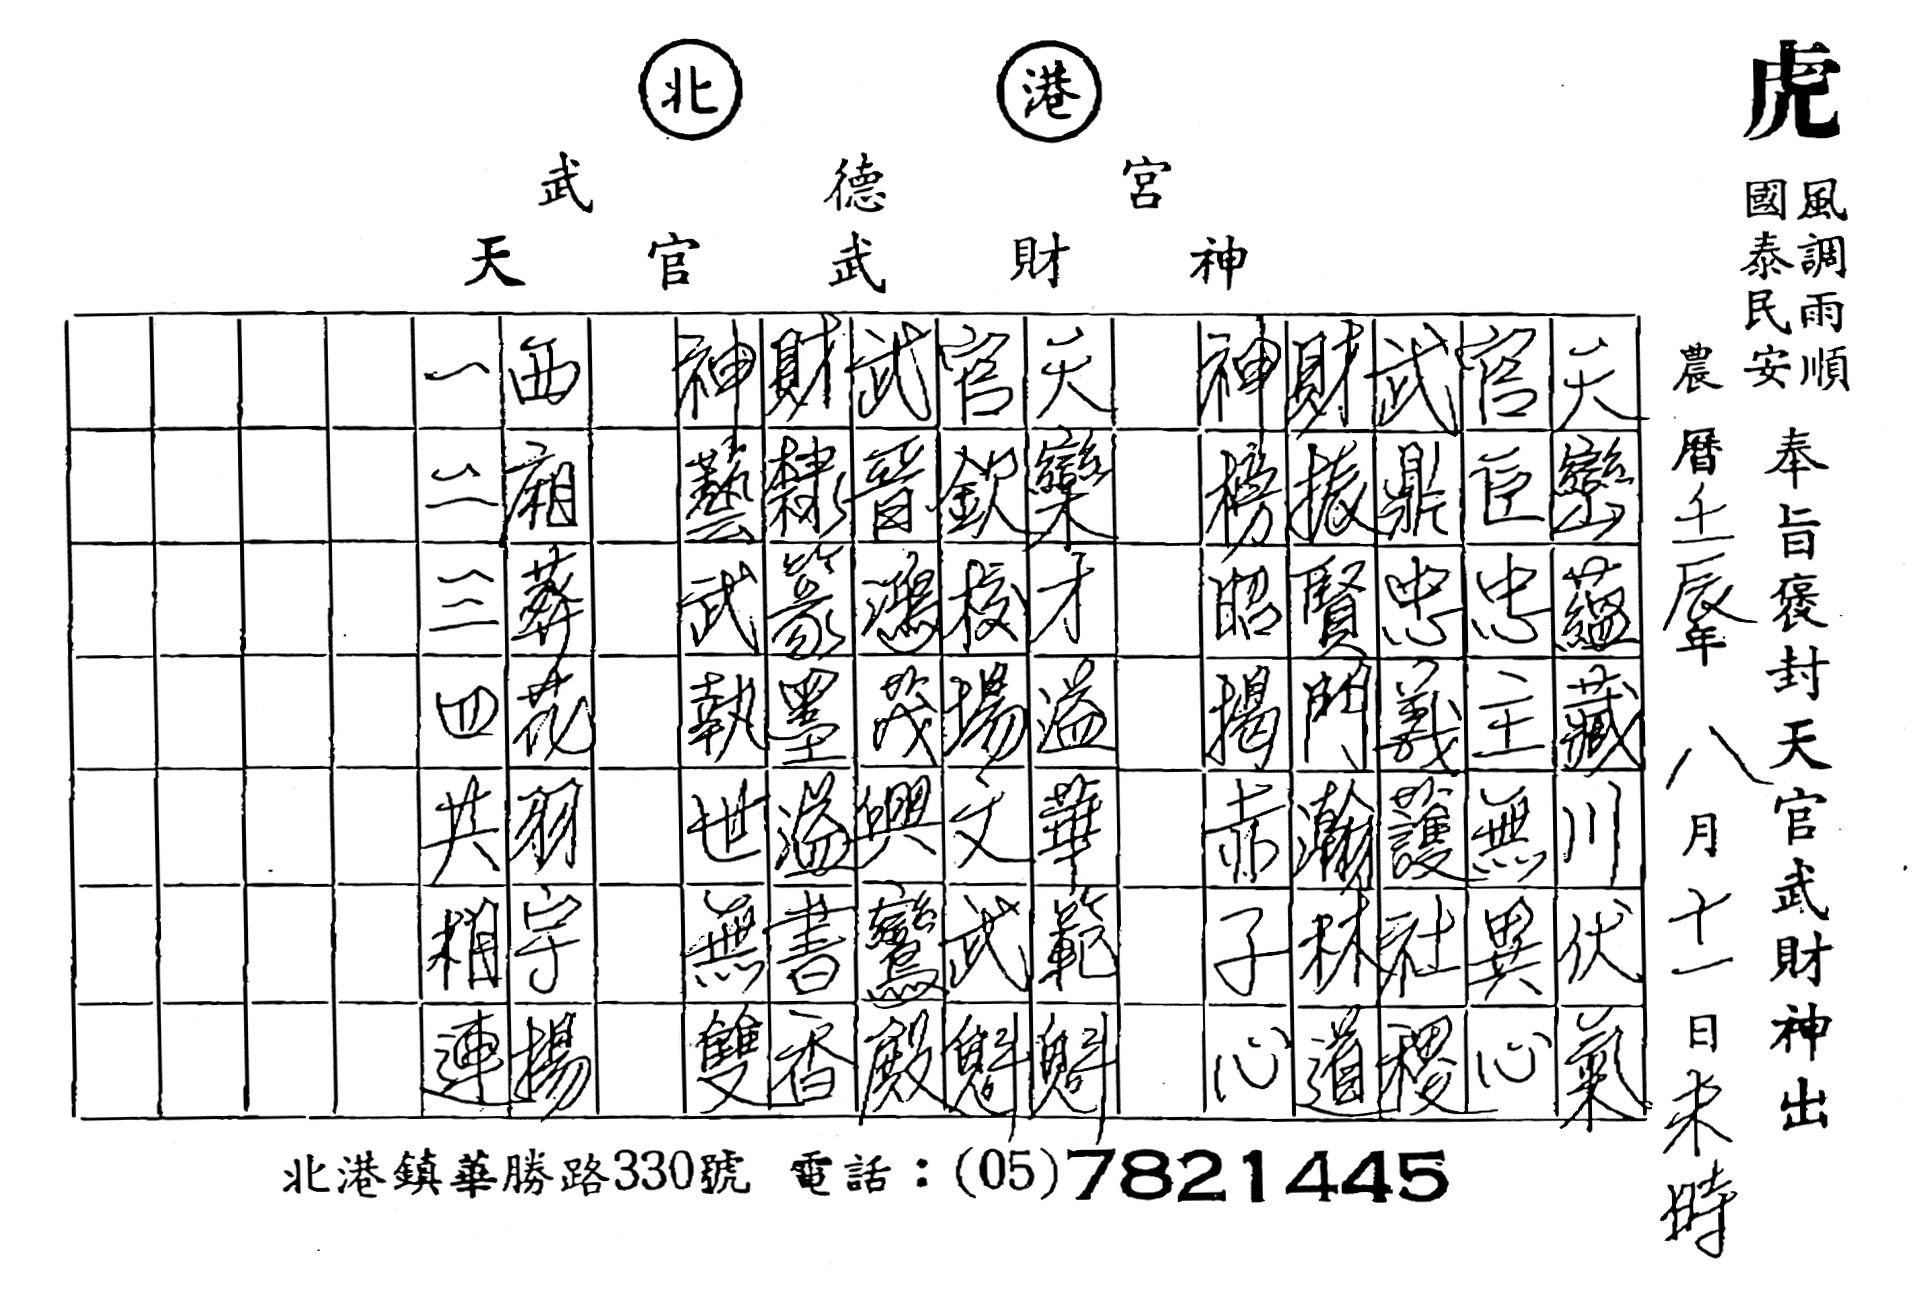 北港
武德宮
天官武財神
虎
風調雨順
國泰民安
奉旨褒封天官武財神出
農曆壬辰年八月十一日未時
天巒蘊藏川伏氣
官臣忠主無異心
武鼎忠義護社稷
財振賢門瀚林道
神榜昭揭赤子心
天欒才溢華範魁
官欽校場文武魁
武晉鴻茂興鸞殿
財隸篆墨溢書香
神藝武執世無雙
西廂葬花羽宇揚
一二三四共相連
北港鎮華勝路330號 電話：(05)7821445